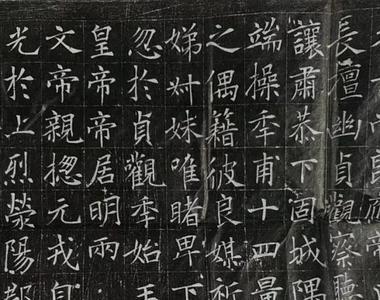 長擅幽貞觀察聽
讓肅恭下固城隅
端操年甫十四量
之偶籍彼良媒祈
娣妹唯睹卑下
忽於貞觀年始
皇帝帝居明兩
文帝親揔元戎自
光於上烈滎陽郡